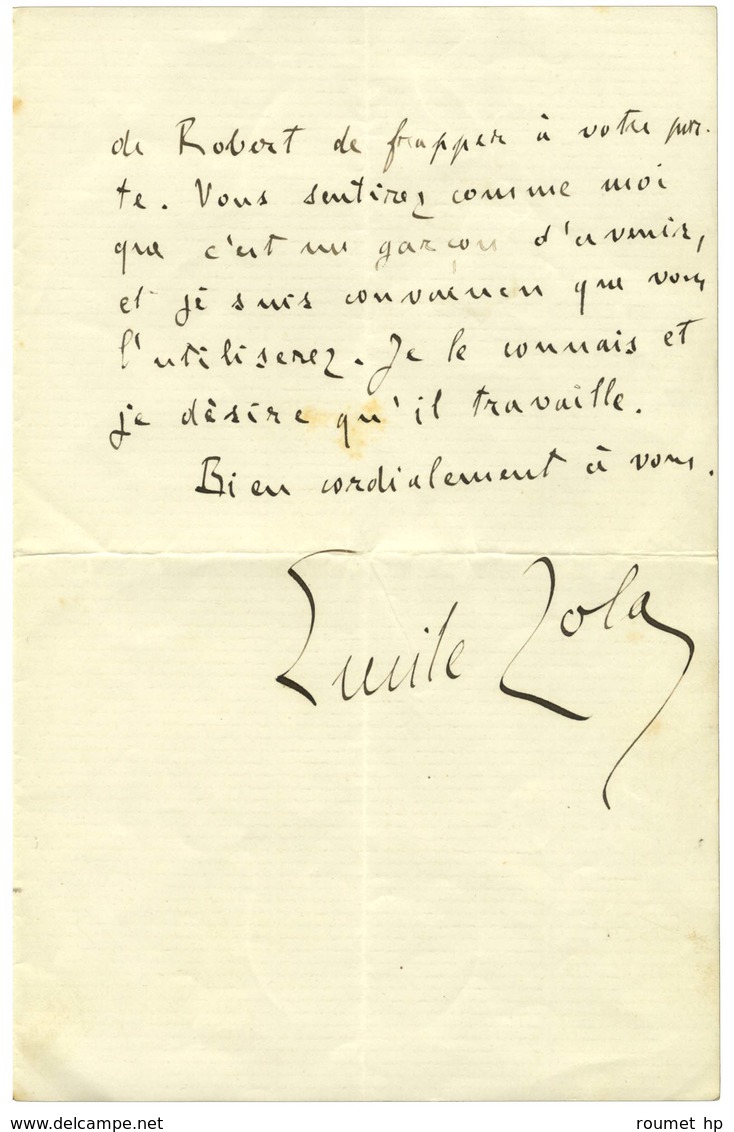 de Robert de frapper à votre por-
te. Vous sentirez comme moi
que c'est un garçon d'avenir,
et je suis convaincu que vous
l'utiliserez. Je le connais et
je désire qu'il travaille.
Bien cordialement à vous.
Emile Zola
www.delcampe.net
roumet hp